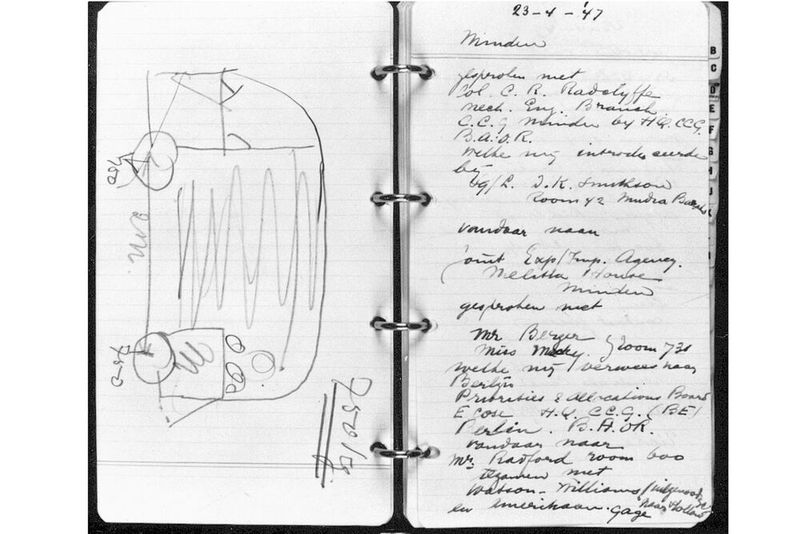 750
2 m.
750
750 kg
23-4-'47
Minden
gesproken met
Col. C. R. Radclyffe
Mech. Eng. Branch
C.C.G Minden by H.Q. CCG.
B.A.O.R.
welke my introduceerde
by
I.K. Smithson
Room 42 Mudra
vandaar naar
Joint Exp/Imp. Agency.
Melitta House
Minden
gesproken met
Mr Berger
Miss Macky. room 731
welke my verwees naar
Berlijn
Priorities & allocations Board
H.Q. CCG. (BE)
Berlin. B.A.O.R.
vandaar naar
Mr. Radford room 600
tezamen met
Watson-Williams
en Amerikaan. Gage naar Holland
B
C
D
E
F
G
H
J
K